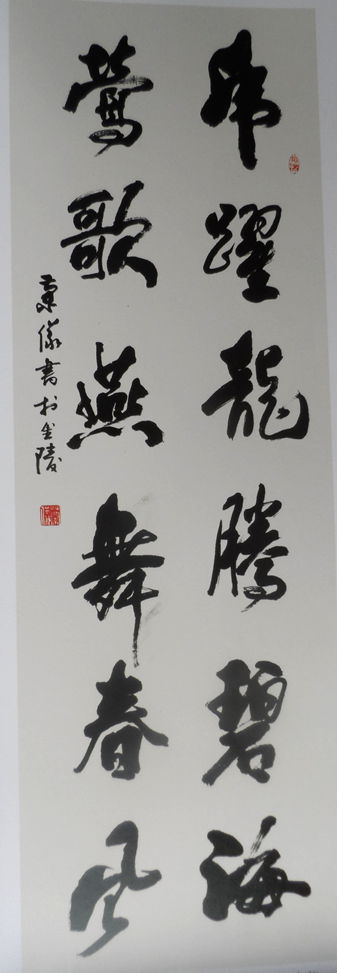 虎躍龍騰碧海
鶯歌燕舞春風
書於金陵